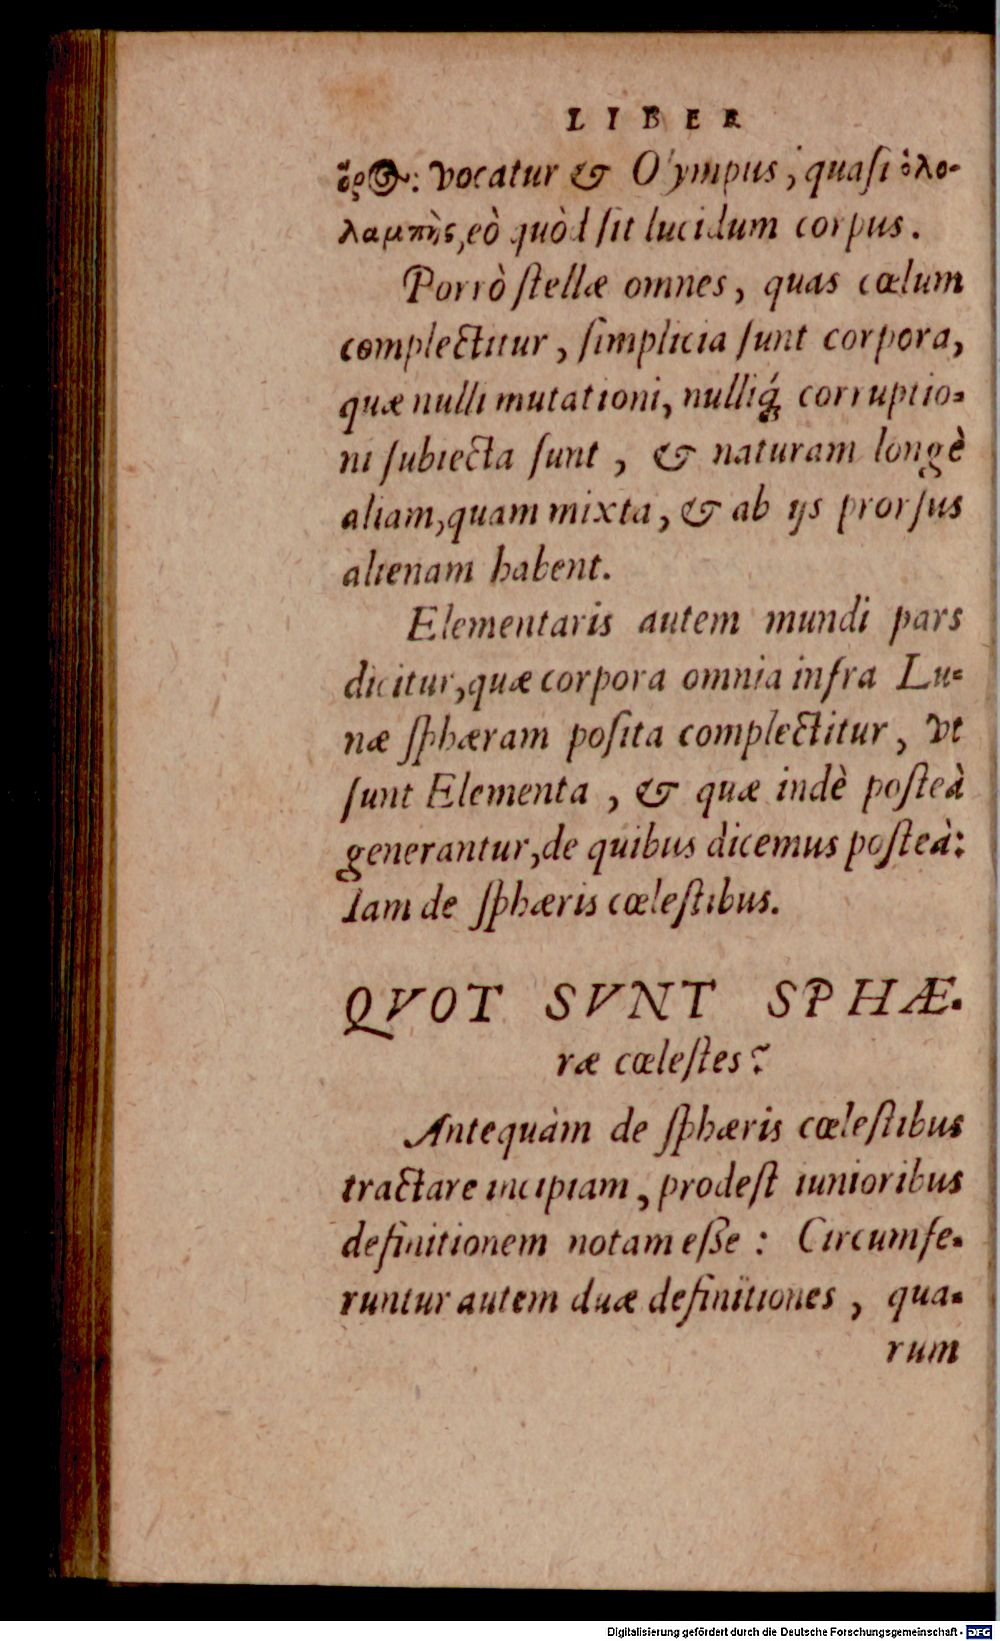 LIBER
ὅρος: vocatur & O'ympus, quaſi ὁλο-
λαμπὴς, eò quòd ſit lucidum corpus.
Porrò ſtellæ omnes, quas cœlum
complectitur, ſimplicia ſunt corpora,
quæ nulli mutationi, nulliq́; corruptio-
ni ſubiecta ſunt, & naturam longè
aliam, quam mixta, & ab ijs prorſus
alienam habent.
Elementaris autem mundi pars
dicitur, quæ corpora omnia infra Lu-
næ ſphæram poſita complectitur, vt
ſunt Elementa, & quæ indè poſteà
generantur, de quibus dicemus poſteà:
Iam de ſphæris cœleſtibus.
QVOT SVNT SPHÆ-
ræ cœleſtes?
Antequàm de ſphæris cœleſtibus
tractare incipiam, prodeſt iunioribus
definitionem notam eſſe: Circumfe-
runtur autem duæ definitiones, qua-
rum
Digitalisierung gefördert durch die Deutsche Forschungsgemeinschaft - DFG